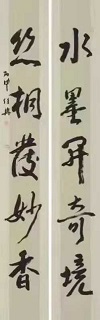 水墨开奇境
丝桐发妙香